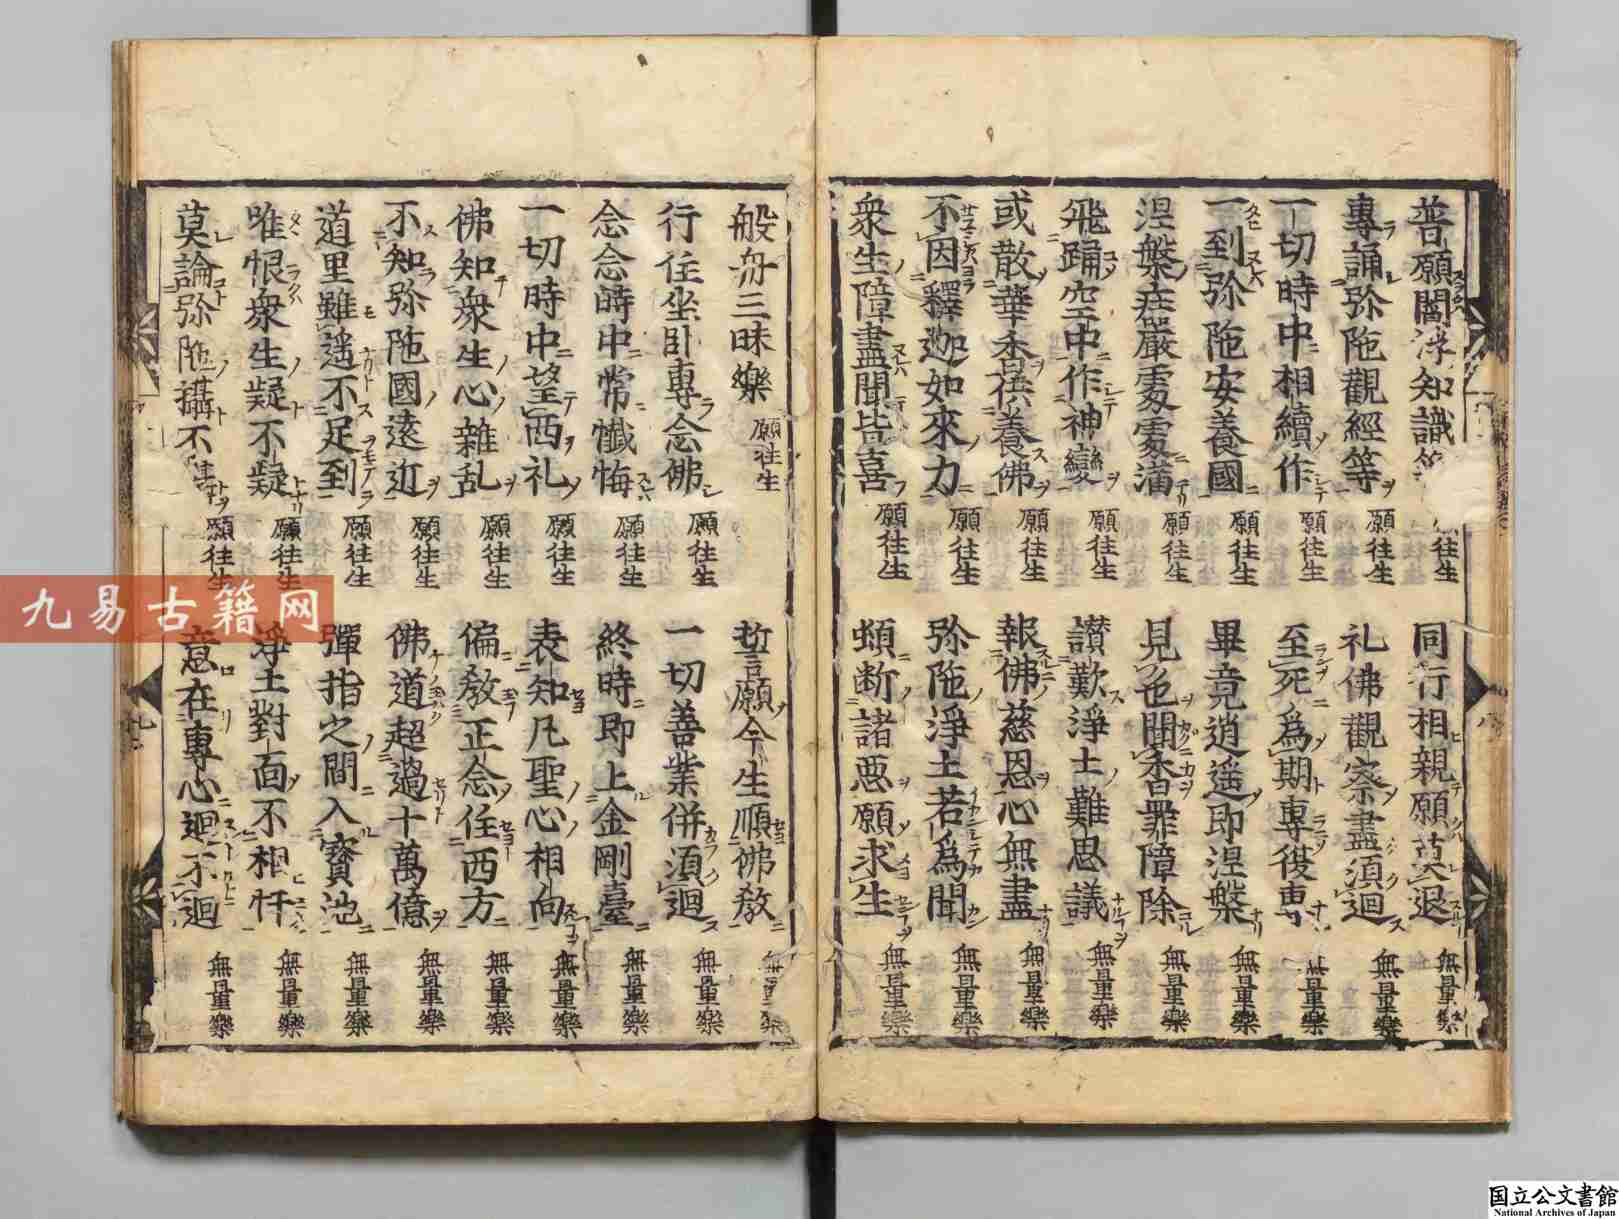 普願閻浮知識等 願往生 同行相親願莫退 無量樂
專誦弥陁觀經等 願往生 礼佛觀察盡須迴 無量樂
一切時中相續作 願往生 至死為期專復專 無量樂
一到弥陁安養國 願往生 畢竟逍遥即涅槃 無量樂
涅槃庄嚴處處滿 願往生 見色聞香罪障除 無量樂
飛踊空中作神變 願往生 讃歎淨土難思議 無量樂
或散華香供養佛 願往生 報佛慈恩心無盡 無量樂
不因釋迦如來力 願往生 弥陁淨土若為聞 無量樂
衆生障盡聞皆喜 願往生 頓断諸惡願求生 無量樂
般舟三昧樂 願往生
行住坐卧專念佛 願往生 誓願今生順佛教 無量樂
念念時中常懺悔 願往生 一切善業併須迴 無量樂
一切時中望西礼 願往生 終時即上金剛臺 無量樂
佛知衆生心雜乱 願往生 表知凡聖心相向 無量樂
不知弥陁國遠近 願往生 偏教正念住西方 無量樂
道里雖遥不足到 願往生 佛道超過十萬億 無量樂
唯恨衆生疑不疑 願往生 彈指之間入寳池 無量樂
莫論弥陁攝不攝 願往生 淨土對面不相忤 無量樂
意在專心迴不迴 無量樂
九易古籍网
国立公文書館
National Archives of Japan